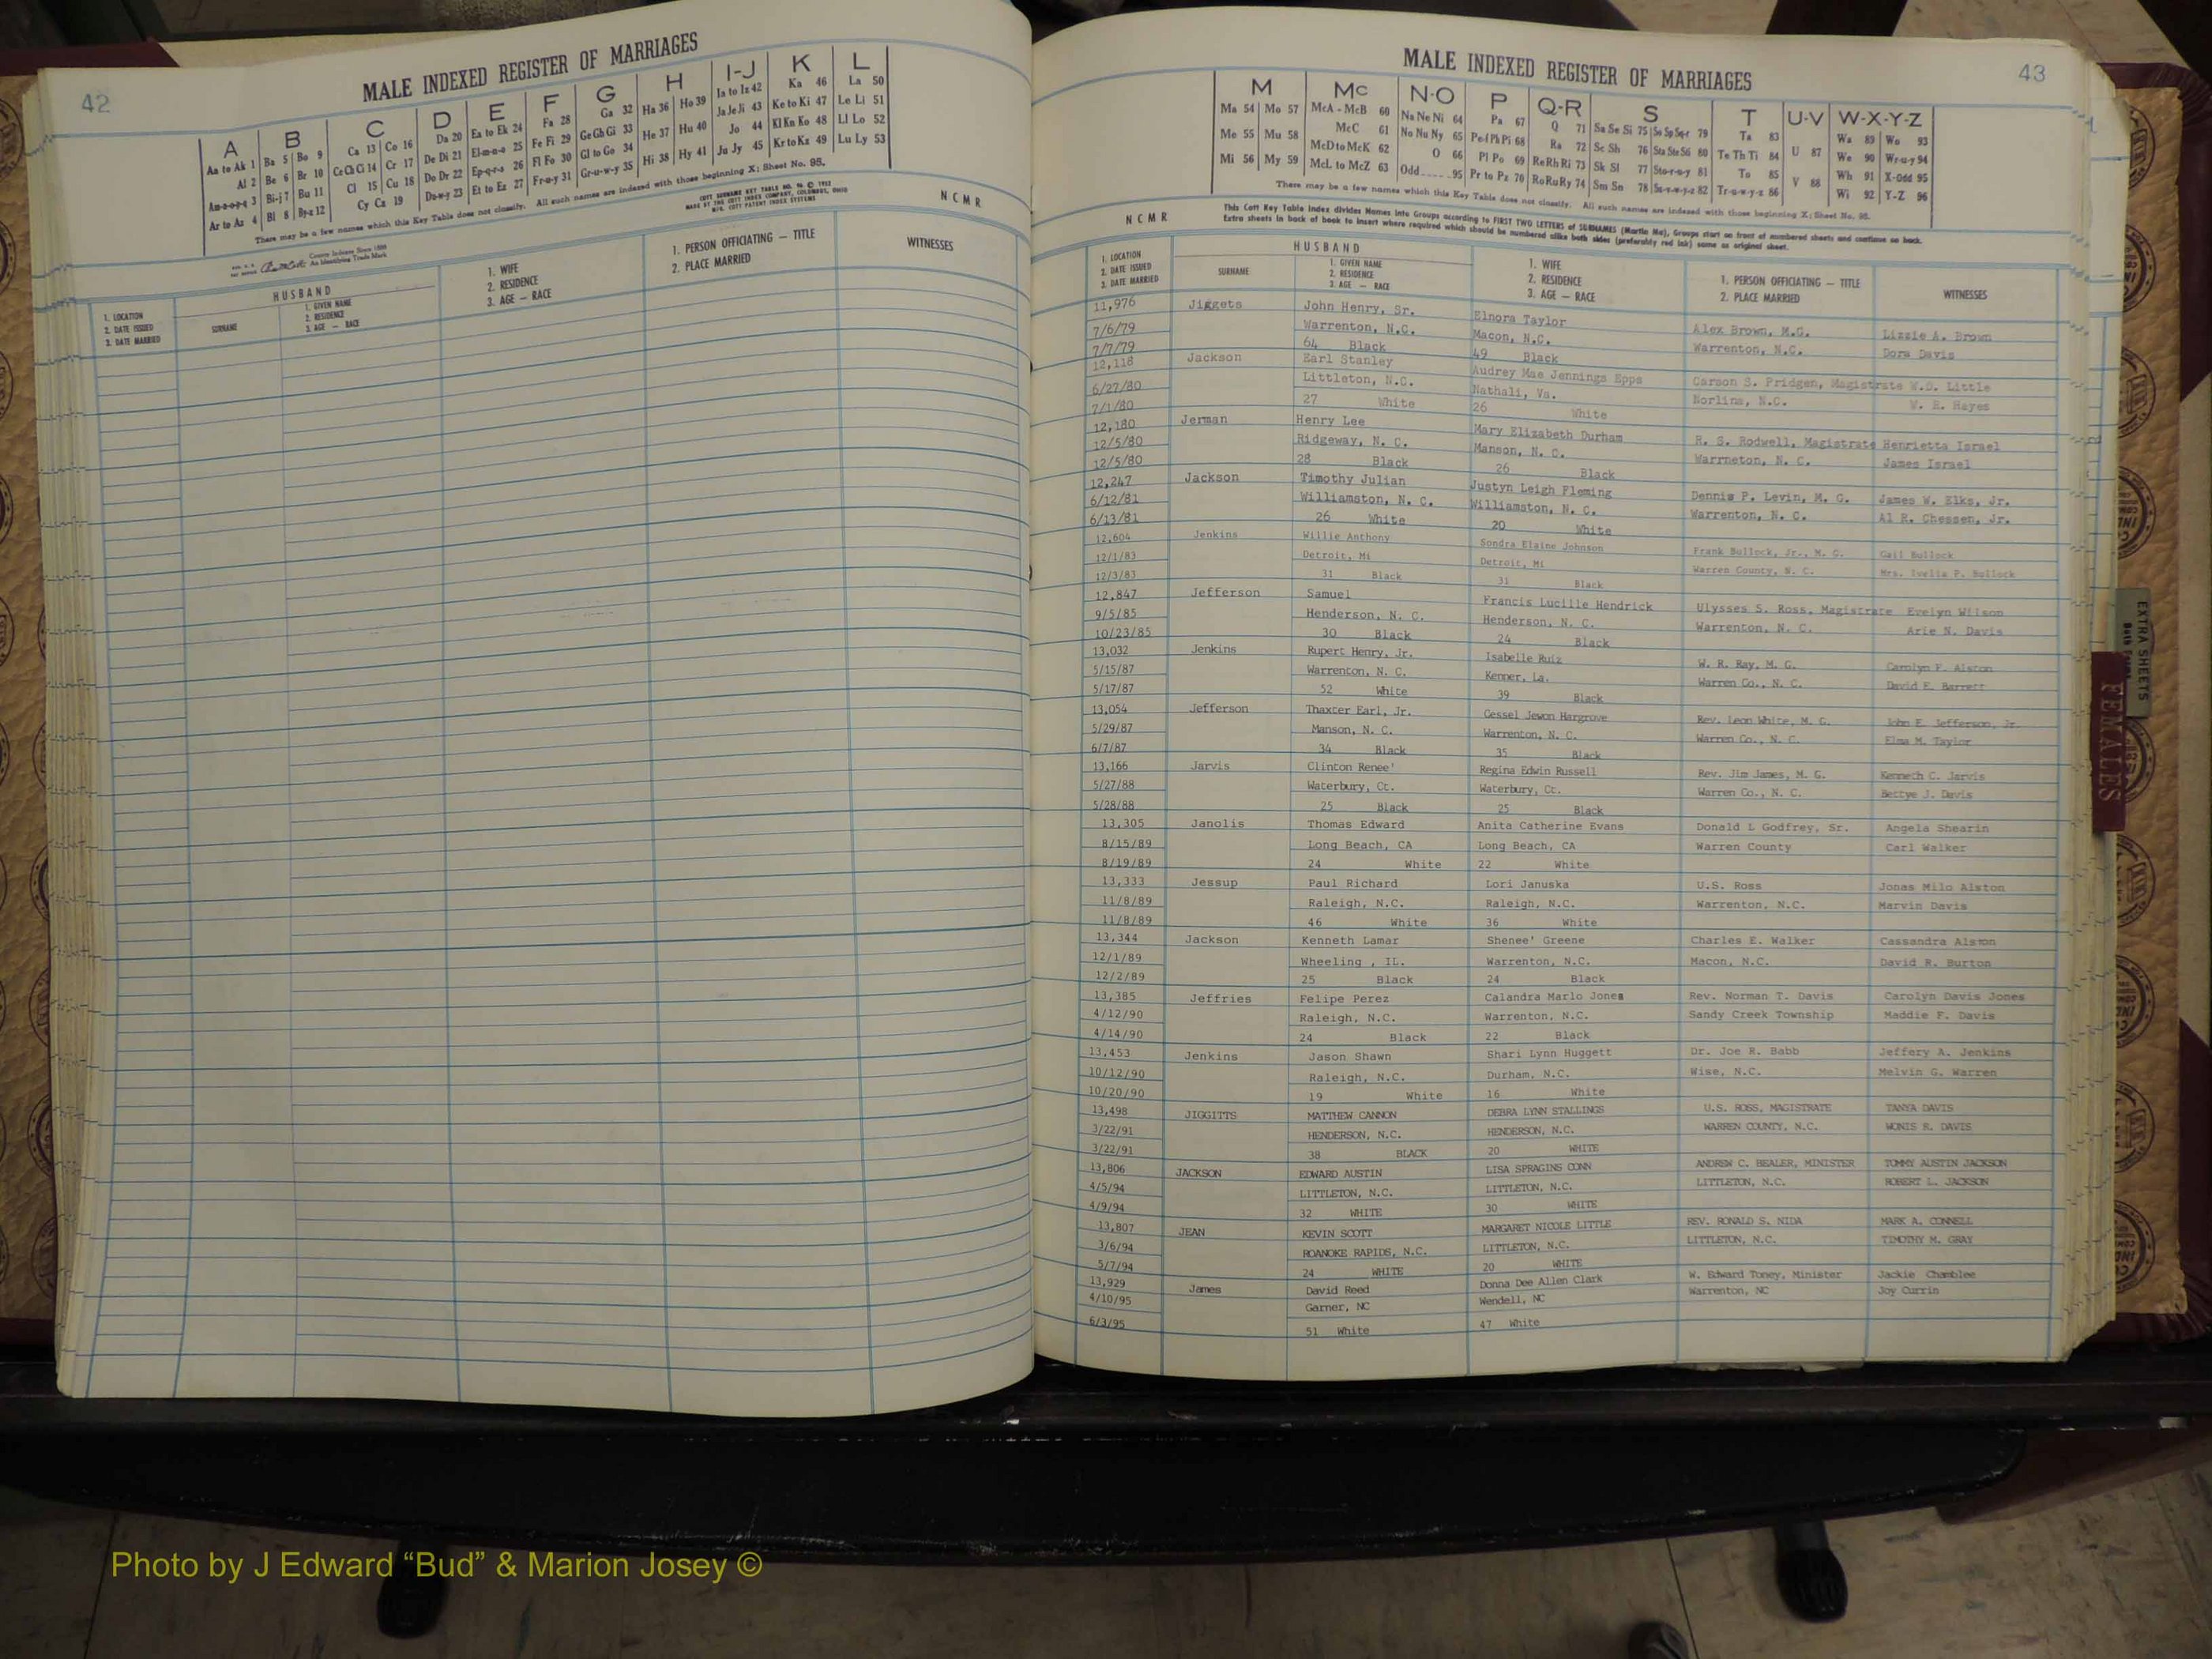 42
MALE INDEXED REGISTER OF MARRIAGES
A B C D E F G H I-J K L
Aa to Ak 1 Ba 5 Bo 9 Ca 13 Co 16 Da 20 Ea to Ek 24 Fa 28 Ga 32 Ha 36 Ho 39 Ia to Iz 42 Ka 46 La 50
Al 2 Be 6 Br 10 Ce Ch Ci 14 Cr 17 De Di 21 El-m-n-o 25 Fe Fi 29 Ge Gh Gi 33 He 37 Hu 40 Ja Je Ji 43 Ke to Ki 47 Le Li 51
Am-n-o-p-q 3 Bi-j 7 Bu 11 Cl 15 Cu 18 Do Dr 22 Ep-q-r-s 26 Fl Fo 30 Gl to Go 34 Hi 38 Hy 41 Jo 44 Kl Kn Ko 48 Ll Lo 52
Ar to Az 4 Bl 8 By-z 12 Cy Cz 19 Du-w-y 23 Et to Ez 27 Fr-u-y 31 Gr-u-w-y 35 Ju Jy 45 Kr to Kz 49 Lu Ly 53
There may be a few names which this Key Table does not classify. All such names are indexed with those beginning X; Sheet No. 95.
NCMR
County Indexes Since 1888
An Identifying Trade Mark
1. LOCATION
2. DATE ISSUED
3. DATE MARRIED
HUSBAND
SURNAME
1. GIVEN NAME
2. RESIDENCE
3. AGE — RACE
1. WIFE
2. RESIDENCE
3. AGE — RACE
1. PERSON OFFICIATING — TITLE
2. PLACE MARRIED
WITNESSES
MALE INDEXED REGISTER OF MARRIAGES
43
M Mc N-O P Q-R S T U-V W-X-Y-Z
Ma 54 Mo 57 McA - McB 60 Na Ne Ni 64 Pa 67 Q 71 Sa Se Si 75 So Sp Sq-r 79 Ta 83 U 87 Wa 89 Wo 93
Me 55 Mu 58 McC 61 No Nu Ny 65 Pe-f Ph Pi 68 Ra 72 Sc Sh 76 Sta Ste S6 80 Te Th Ti 84 V 88 We 90 Wr-u-y 94
Mi 56 My 59 McD to McK 62 O 66 Pl Po 69 Re Rh Ri 73 Sk Sl 77 Sto-r-u-y 81 To 85 Wh 91 X-Odd 95
McL to McZ 63 Odd 95 Pr to Pz 70 Ro Ru Ry 74 Sm Sn 78 Su-v-w-y-z 82 Tr-u-w-y-z 86 Wi 92 Y-Z 96
There may be a few names which this Key Table does not classify. All such names are indexed with those beginning X; Sheet No. 95.
NCMR
This Cott Key Table Index divides Names into Groups according to FIRST TWO LETTERS of SURNAMES (Martin Ma), Groups start on front of numbered sheets and continue on back.
Extra sheets in back of book to insert where required which should be numbered alike both sides (preferably red ink) same as original sheet.
1. LOCATION
2. DATE ISSUED
3. DATE MARRIED
HUSBAND
SURNAME
1. GIVEN NAME
2. RESIDENCE
3. AGE — RACE
1. WIFE
2. RESIDENCE
3. AGE — RACE
1. PERSON OFFICIATING — TITLE
2. PLACE MARRIED
WITNESSES
11,976 Jiggets John Henry, Sr. Elnora Taylor Alex Brown, M.G. Lizzie A. Brown
7/6/79 Warrenton, N.C. Macon, N.C. Warrenton, N.C. Dora Davis
7/7/79 64 Black 49 Black
12,118 Jackson Earl Stanley Audrey Mae Jennings Epps Carson S. Pridgen, Magistrate W.S. Little
6/27/80 Littleton, N.C. Nathali, Va. Norlina, N.C. W. R. Hayes
7/1/80 27 White 26 White
12,180 Jerman Henry Lee Mary Elizabeth Durham R. S. Rodwell, Magistrate Henrietta Israel
12/5/80 Ridgeway, N. C. Manson, N. C. Warrneton, N. C. James Israel
12/5/80 28 Black 26 Black
12,247 Jackson Timothy Julian Justyn Leigh Fleming Dennis P. Levin, M. G. James W. Elks, Jr.
6/12/81 Williamston, N. C. Williamston, N. C. Warrenton, N. C. Al R. Chessen, Jr.
6/13/81 26 White 20 White
12,604 Jenkins Willie Anthony Sondra Elaine Johnson Frank Bullock, Jr., M. G. Gail Bullock
12/1/83 Detroit, Mi Detroit, Mi Warren County, N. C. Mrs. Ivelia P. Bullock
12/3/83 31 Black 31 Black
12,847 Jefferson Samuel Francis Lucille Hendrick Ulysses S. Ross, Magistrate Evelyn Wilson
9/5/85 Henderson, N. C. Henderson, N. C. Warrenton, N. C. Arie N. Davis
10/23/85 30 Black 24 Black
13,032 Jenkins Rupert Henry, Jr. Isabelle Ruiz W. R. Ray, M. G. Carolyn F. Alston
5/15/87 Warrenton, N. C. Kenner, La. Warren Co., N. C. David E. Barrett
5/17/87 52 White 39 Black
13,054 Jefferson Thaxter Earl, Jr. Cessel Jewon Hargrove Rev. Leon White, M. G. John E. Jefferson, Jr.
5/29/87 Manson, N. C. Warrenton, N. C. Warren Co., N. C. Elma M. Taylor
6/7/87 34 Black 35 Black
13,166 Jarvis Clinton Renee' Regina Edwin Russell Rev. Jim James, M. G. Kenneth C. Jarvis
5/27/88 Waterbury, Ct. Waterbury, Ct. Warren Co., N. C. Bettye J. Davis
5/28/88 25 Black 25 Black
13,305 Janolis Thomas Edward Anita Catherine Evans Donald L Godfrey, Sr. Angela Shearin
8/15/89 Long Beach, CA Long Beach, CA Warren County Carl Walker
8/19/89 24 White 22 White
13,333 Jessup Paul Richard Lori Januska U.S. Ross Jonas Milo Alston
11/8/89 Raleigh, N.C. Raleigh, N.C. Warrenton, N.C. Marvin Davis
11/8/89 46 White 36 White
13,344 Jackson Kenneth Lamar Shenee' Greene Charles E. Walker Cassandra Alston
12/1/89 Wheeling , IL. Warrenton, N.C. Macon, N.C. David R. Burton
12/2/89 25 Black 24 Black
13,385 Jeffries Felipe Perez Calandra Marlo Jones Rev. Norman T. Davis Carolyn Davis Jones
4/12/90 Raleigh, N.C. Warrenton, N.C. Sandy Creek Township Maddie F. Davis
4/14/90 24 Black 22 Black
13,453 Jenkins Jason Shawn Shari Lynn Huggett Dr. Joe R. Babb Jeffery A. Jenkins
10/12/90 Raleigh, N.C. Durham, N.C. Wise, N.C. Melvin G. Warren
10/20/90 19 White 16 White
13,498 JIGGITTS MATTHEW CANNON DEBRA LYNN STALLINGS U.S. ROSS, MAGISTRATE TANYA DAVIS
3/22/91 HENDERSON, N.C. HENDERSON, N.C. WARREN COUNTY, N.C. WONIS R. DAVIS
3/22/91 38 BLACK 20 WHITE
13,806 JACKSON EDWARD AUSTIN LISA SPRAGINS CONN ANDREW C. BEALER, MINISTER TOMMY AUSTIN JACKSON
4/5/94 LITTLETON, N.C. LITTLETON, N.C. LITTLETON, N.C. ROBERT L. JACKSON
4/9/94 32 WHITE 30 WHITE
13,807 JEAN KEVIN SCOTT MARGARET NICOLE LITTLE REV. RONALD S. NIDA MARK A. CONNELL
3/6/94 ROANOKE RAPIDS, N.C. LITTLETON, N.C. LITTLETON, N.C. TIMOTHY M. GRAY
5/7/94 24 WHITE 20 WHITE
13,929 James David Reed Donna Dee Allen Clark W. Edward Toney, Minister Jackie Chamblee
4/10/95 Garner, NC Wendell, NC Warrenton, NC Joy Currin
6/3/95 51 White 47 White
EXTRA SHEETS
FEMALES
Photo by J Edward “Bud” & Marion Josey ©